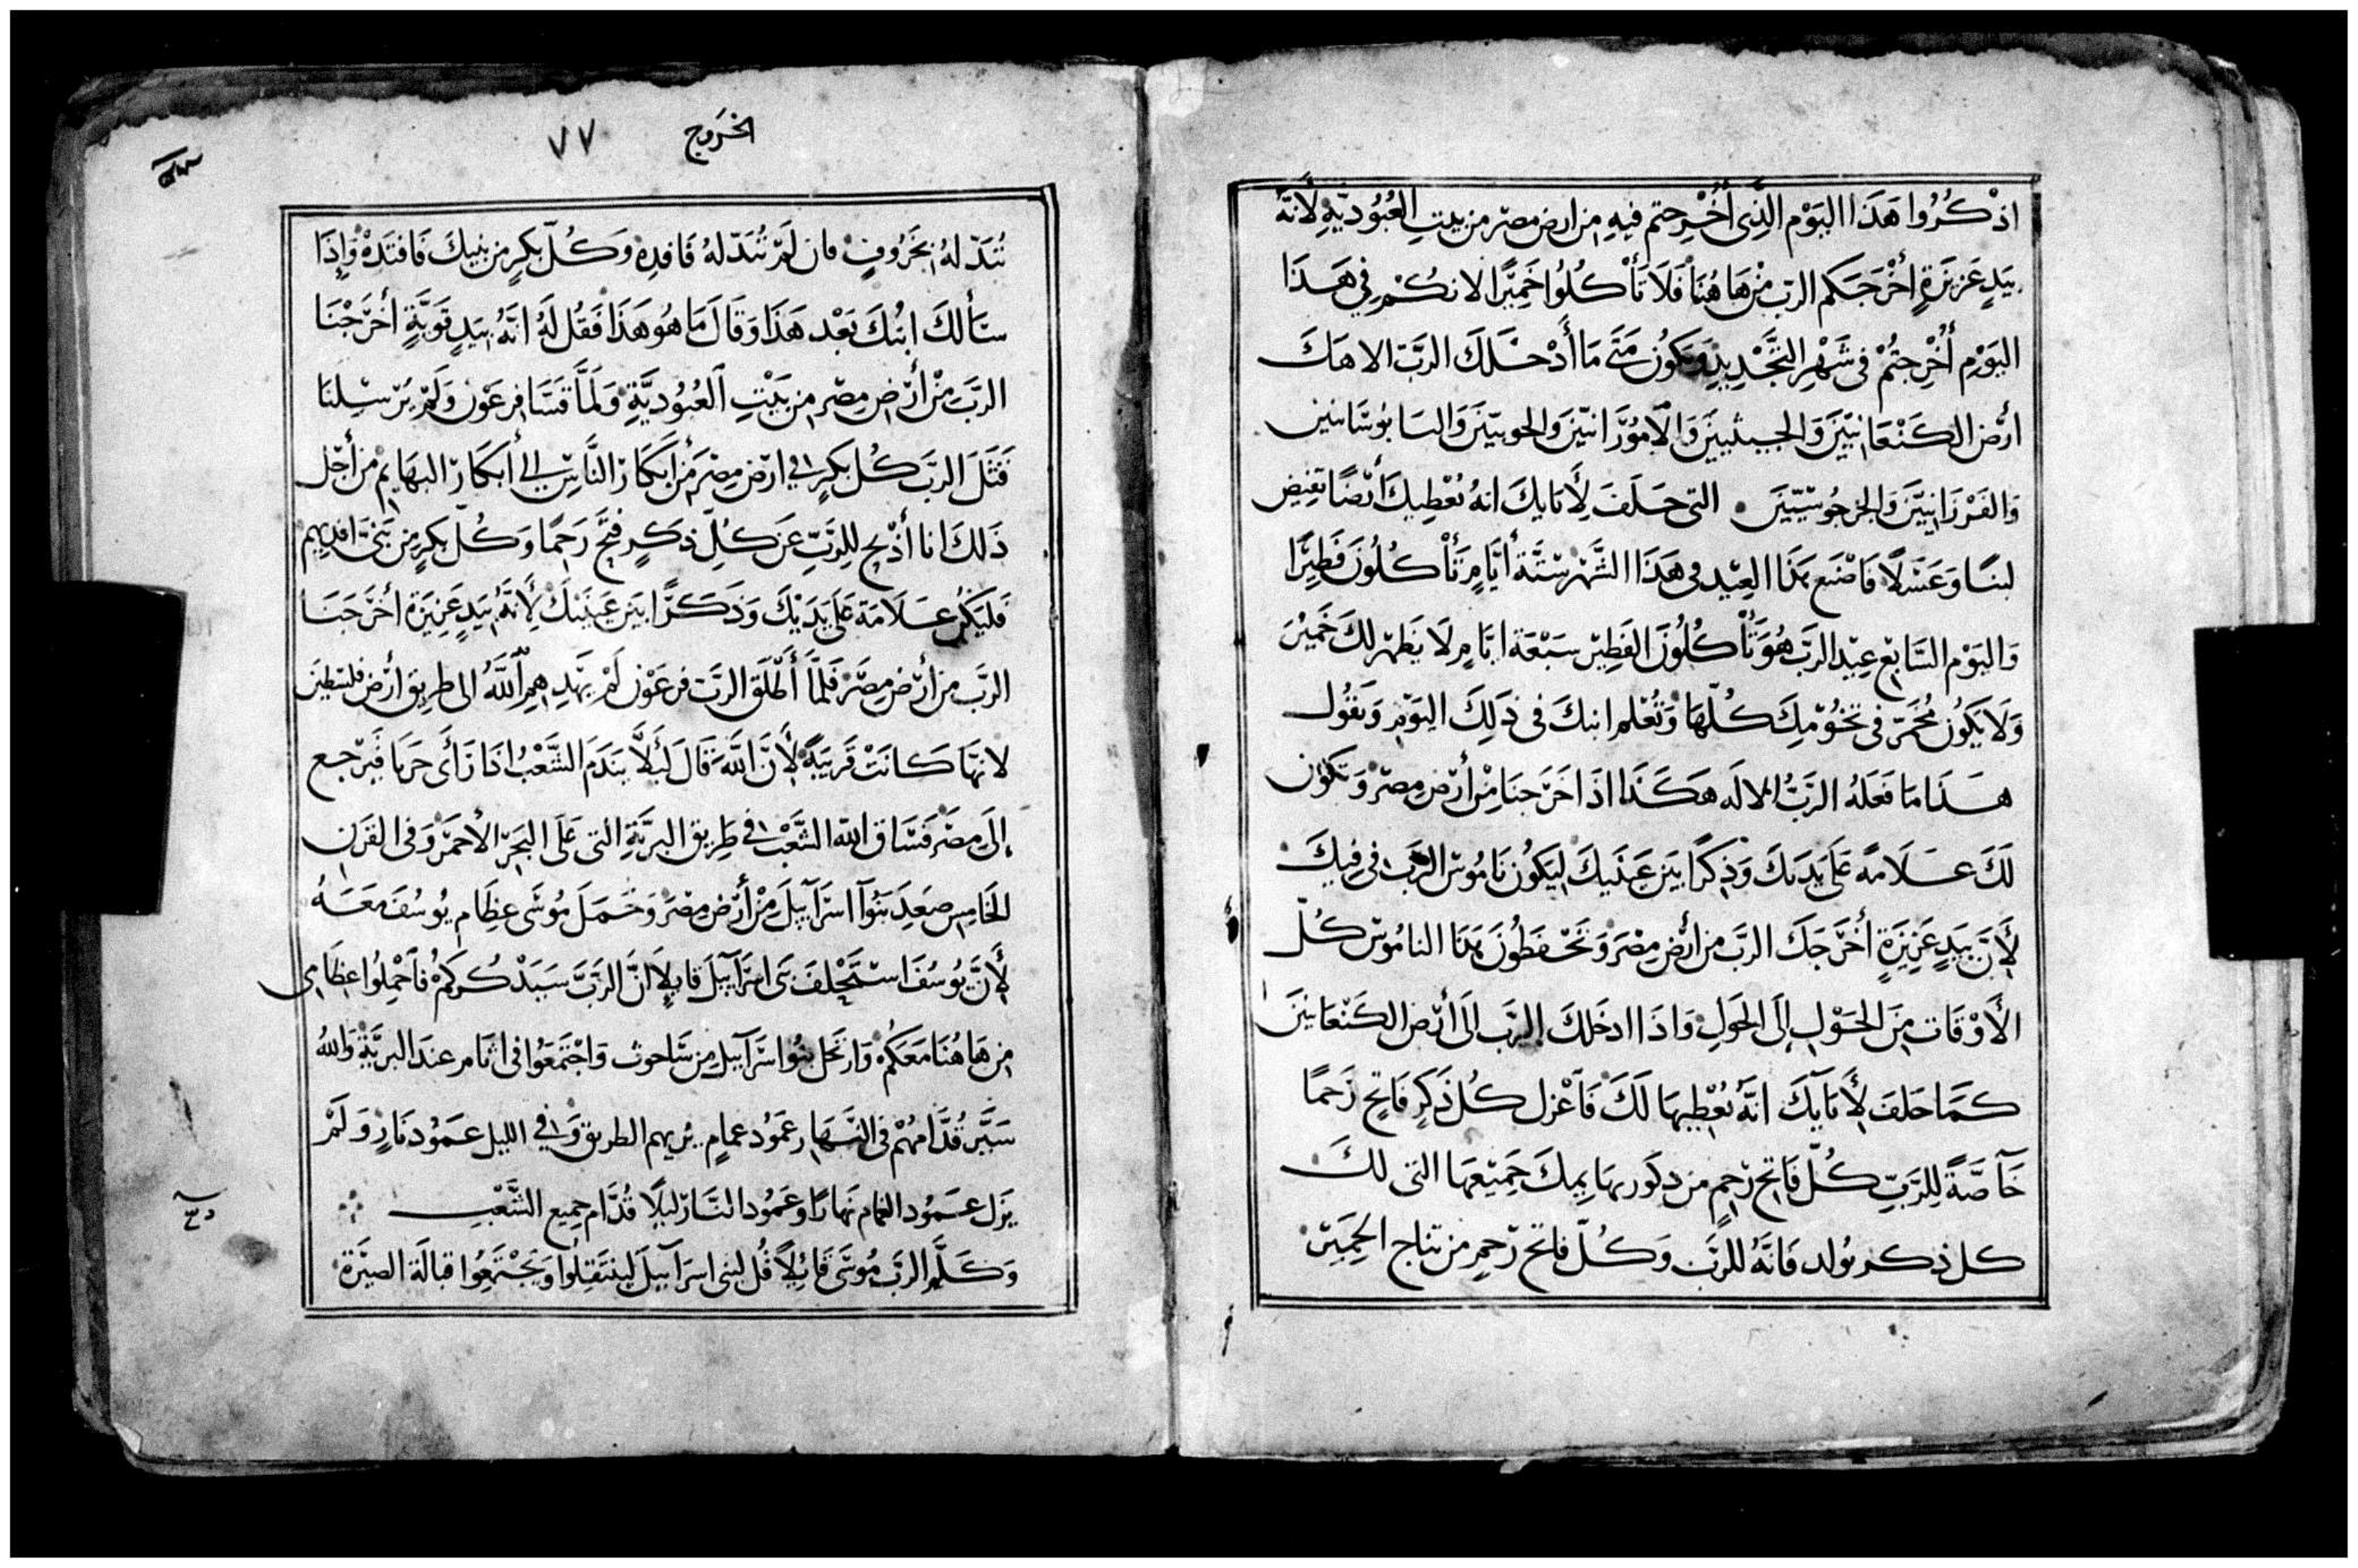 اذْكُرُوا هَذَا اليَوْم الَّذِى أُخْرِجتم فيهِ من ارض مصر من بيتِ العُبُودِيَّةِ لأَنَّهُ
بيَدٍ عَزيزَةٍ أخْرَجَكم الربّ مِنْ هَا هُنَا فَلَا تَأْكُلُوا خَمِيرًا لانكُمْ فِي هَذَا
اليَوْمِ أُخْرِجتُمْ فى شَهْرِ التَّجْدِيدِ وَيَكُونُ مَتَى مَا أَدْخَلَكَ الرَّبّ الاهكَ
ارْض الكَنْعَانِيّينَ وَالحيثيينَ وَالأَمُورَّانيّينَ وَالحويّينَ وَاليَابُوسَّانيين
وَالفَرْزَانِيّينَ وَالجرجُوسَيّينَ التى حَلَفَ لِأَبَايكَ انهُ يُعْطِيكَ أَرْضًا تفيض
لبنًا وَعَسَلًا فَاصْنَع هَذَا العِيْد فى هَذَا الشَّهْر ستَّة أَيَّامٍ تَأْكُلُونَ فَطِيرًا
وَاليَوْم السَّابِع عِيْد الرَّبّ هُوَ تَأْكُلُونَ الفَطِيْر سَبْعَة ايَّامٍ لَا يَظْهَر لكَ خَمِيْر
وَلَا يَكُونُ مُخْمَرّ فى تخُوْمِكَ كُلّهَا وَتُعْلم ابنكَ فى ذَلِكَ اليَوْمِ وَتقُول
هَذَا مَا فَعَلَهُ الرَّبُّ الالَه هَكَذَا اذَ اخَرَجنَا مِنْ أَرْض مِصْرَ وَتكُون
لَكَ عَلَامةً عَلَى يَدَكَ وَذِكرًا بَيْن عَيْنَيكَ ليَكُون نَامُوْس الرَّبّ فى فِيكَ
لأَنَّ بيَدٍ عَزِيزَةٍ أخْرَجَكَ الرَّبّ من أرْض مِصْرَ وَتَحْفَظُونَ هَذَا النامُوْس كُلّ
الأَوْقَات مِنَ الحَوْلِ إِلَى الحَولِ وَاذَا ادخَلكَ الرَّبّ إلَى أرْض الكَنْعَانيّينَ
كمَا حَلفَ لأَبَايكَ انَّهُ يُعْطِيهَا لَكَ فَاعْزل كُل ذَكَرٍ فَاتح رَحمًا
خَاصَّةً لِلرَّبِّ كُلّ فَاتِح رَحِمٍ من ذكَور بهَايمِكَ جَمِيْعهَا التى لكَ
كل ذكر يُولد فَانَّهُ للرَّبّ وَكُلّ فاتح رَحمٍ من نتاج الحمِير
الخروج ٧٧
تُبَدّلهُ بخَرُوفٍ فان لَمْ تُبَدّلهُ فَافدِهِ وَكُلّ بِكرٍ من بنيكَ فَافتَدهْ وَإِذَا
سَأَلكَ ابنُكَ بَعْد هَذَا وَقَالَ مَا هُو هَذَا فَقُل لَهُ انَّهُ بيَدٍ قَويَّةٍ أخرَجْنَا
الرَّب مِنْ أرْض مِصْر من بَيْتِ العُبُودِيَّةِ وَلَمَّا قَسَا فِرعَوْن وَلَمْ يُرْسِلنَا
قَتَلَ الرَّبّ كُل بكرٍ فى ارْض مِصْرَ مِن أبكَار النَّاسِ إلى أَبكَار البهَايم من أجْل
ذَلكَ انا أذْبح للِرَّبِّ عَن كُلِّ ذكَرٍ فتَح رَحِمًا وَكُلّ بِكرٍ من بَنِيَّ افديهم
فَليَكُنْ عَلَامَة عَلَى يَدَيْكَ وَذكرًا بَين عَينَيْكَ لِأَنَّهُ بيَدٍ عَزِيزَة اخرَجَنَا
الرَّبّ من أرْض مِصْرَ فَلَمَّا أَطْلَق الرَّبّ فرعَوْن لَمْ يَهْدِهِم اللَّهُ الى طريق أرْض فلسْطين
لانهَّا كانَتْ قَريبَةً لأَنَّ اللَّهَ قَالَ لَئِلَّا يندَمَ الشَّعْبُ اذَا رَأَى حَربًا فَيَرْجع
إلَى مِصْر فَسَاق اللّه الشَّعْبَ فى طَرِيق البريَّةِ التى عَلَى البَحْر الأحمَر وَفى القَرن
الخَامِس صَعِدَ بَنُوا اسرَآييل مِنْ أَرْض مِصْرَ وَحَمَلَ مُوسَى عِظَام يُوسُف مَعَهُ
لأَنَّ يُوسُفَ اسْتَحْلفَ بَنى اسرَآييل قَايلًا انَّ الرَّبَّ سَيَذْكُركُمْ فَاحْمِلُوا عظَامِى
من هَا هُنَا مَعَكمْ وَارتحَل بنُوا اسرَآييل مِن سَاحوث وَاجْتَمَعُوا فى اثَامر عندَ البريَّة وَاللهُ
سَيَّر قُدَّامهُمْ فى النهَار عَمُود غمامٍ يُريهم الطريق وَفى الليل عَمُود نَارٍ وَلَمْ
يَزل عَمُود الغمام نهَارًا وَعَمُود النَّار ليْلًا قُدَّام جميع الشَّعْبِ
وَكَلَّم الرَّبّ مُوسَى قَائِلًا قُل لبنى اسرَآييل لينتَقِلُوا وَيَجْتَمِعُوا قبالَة الصيَرة